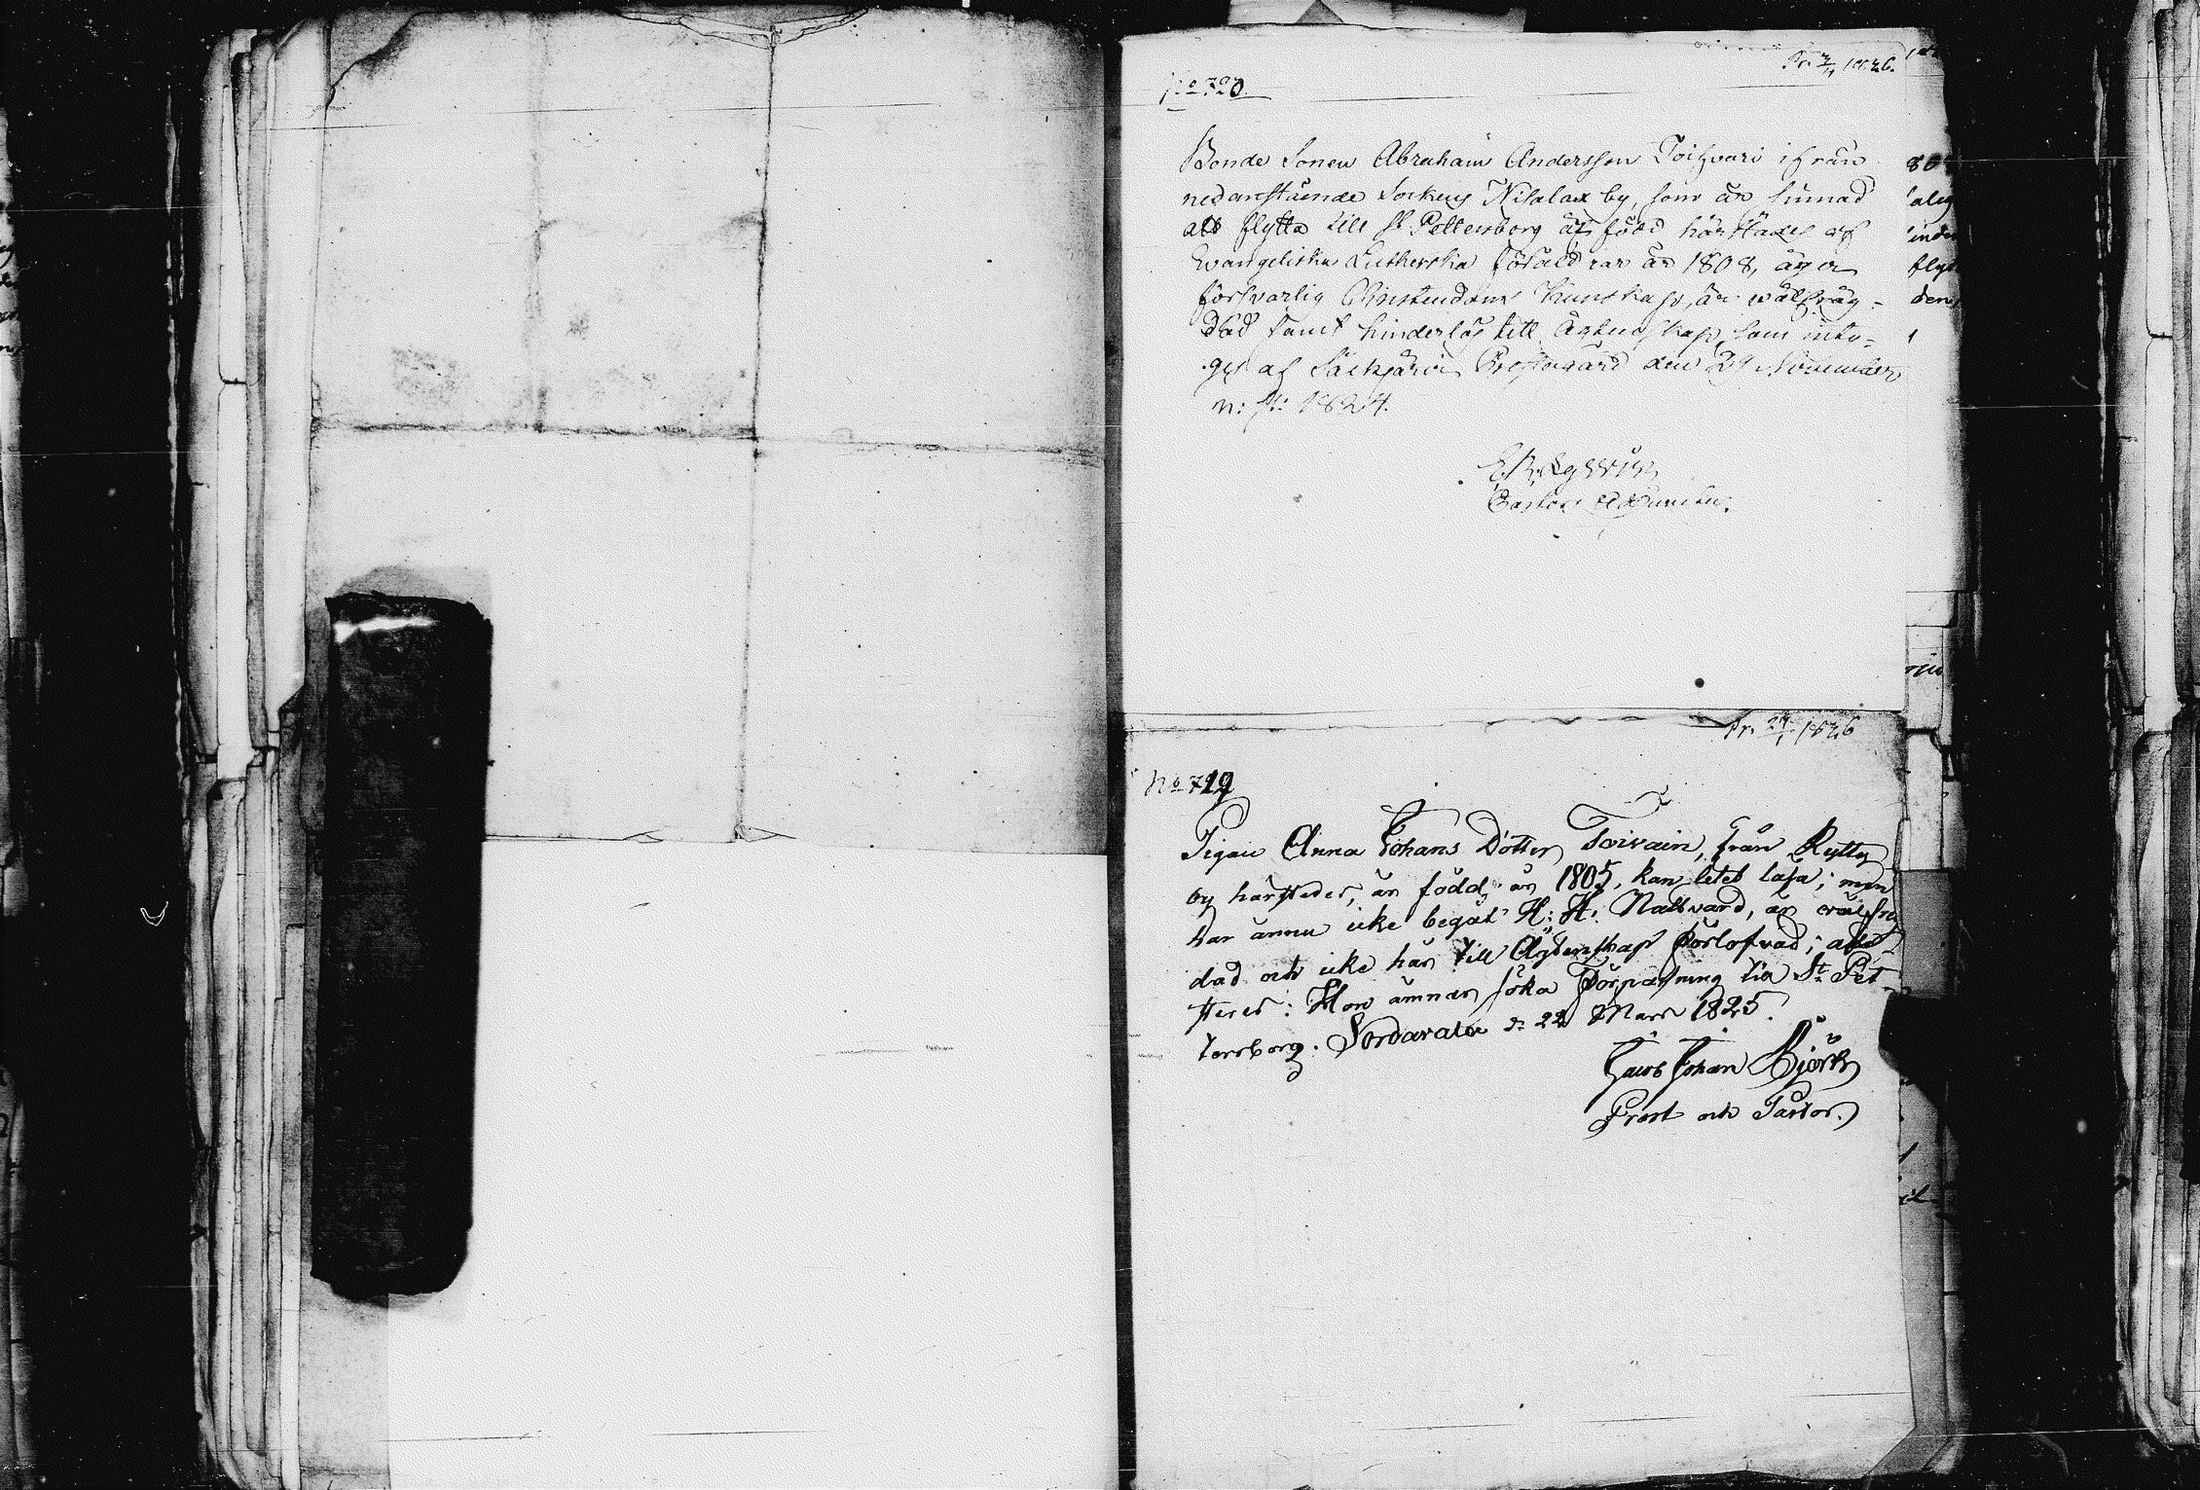 Pr. 3/4 1826.
No 720.
Bonde Sonen Abraham Andersson Toisvari ifrån
nedanstående Sockens Nisalax by, som är sinnad
att flytta till St Pettersborg är född härstädes af
Evangeliska Lutherska föräldrar år 1808, äger
försvarlig Christendoms Kunskap, är wälfräg-
dad samt hinderlös till Ägtenskap, som inty-
gas af Säckjärvi Prestegård den 29 November
n: st: 1824.
Pastors Adjunctus.
Pr. 24/1 1826
No 719
Pigan Anna Johans Dotter Toivain, från Rytty
by härstedes, är född år 1805, kan litet läsa; men
har ännu icke begått H: H: Nattvard, är wälfräg
dad och icke här till Ägtenskap förlofvad; atte-
steres: Hon ämnar söka Förpassning till St Pet
tersborg. Sordavala d: 22 Mars 1825.
Jacob Johan Björk
Prost och Pastor.